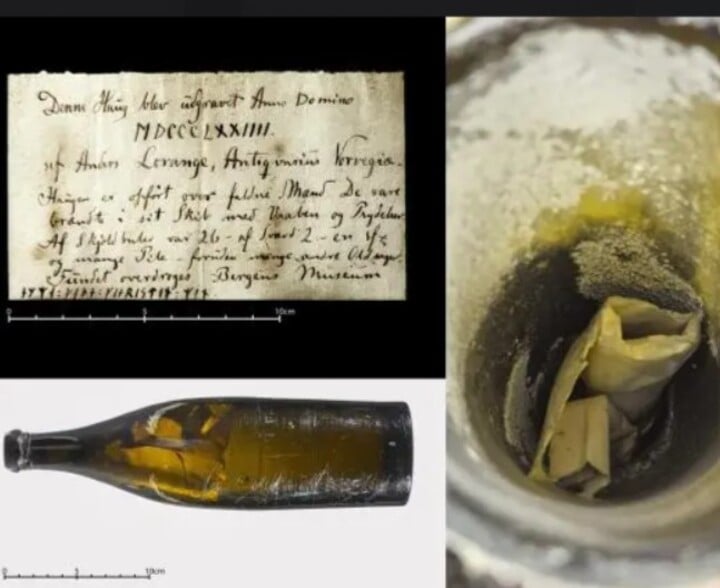 Denne Haug blev udgravet Anno Domino
MDCCCLXXIIII.
af Anders Lorange, Antiqvarius Norvegiæ.
Haugen er opført over faldne Mænd De vare
brændte i sit Skib med Vaaben og Prydelser
Af Skjoldbuler var 26 - af Sværd 2 - en
og mange Pile - foruden mange andre Oldsager.
Fundet overdroges Bergens Museum
0 5 10cm
0 5 10cm